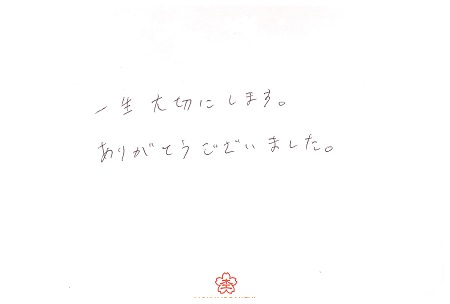 一生大切にします。
ありがとうございました。